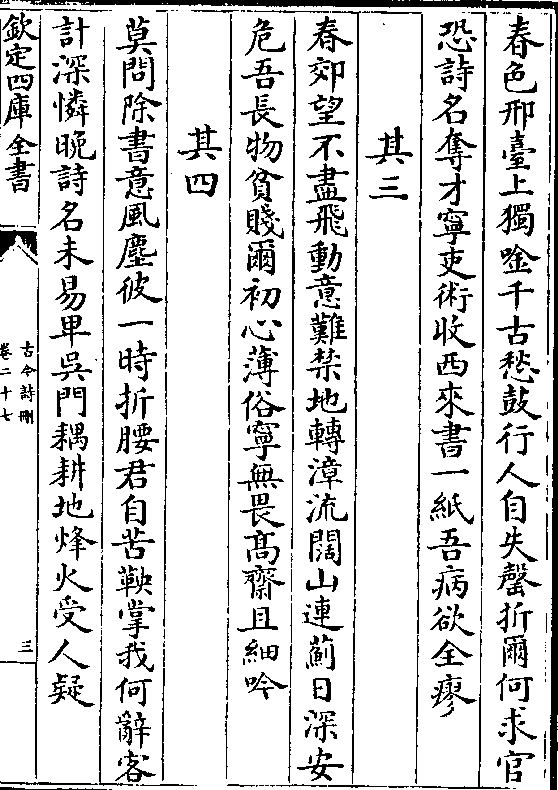 春色邢臺上獨唫千古愁鼓行人自失罄折爾何求官
恐詩名奪才寧吏術收西來書一紙吾病欲全瘳
其三
春郊望不盡飛動意難禁地轉漳流闊山連薊日深安
危吾長物貧賤爾初心薄俗寧無畏髙齋且細吟
其四
莫問除書意風塵彼一時折腰君自苦鞅掌我何辭客
計深憐晚詩名未易卑吳門耦耕地烽火受人疑
欽定四庫全書
古今詩刪
卷二十七
三